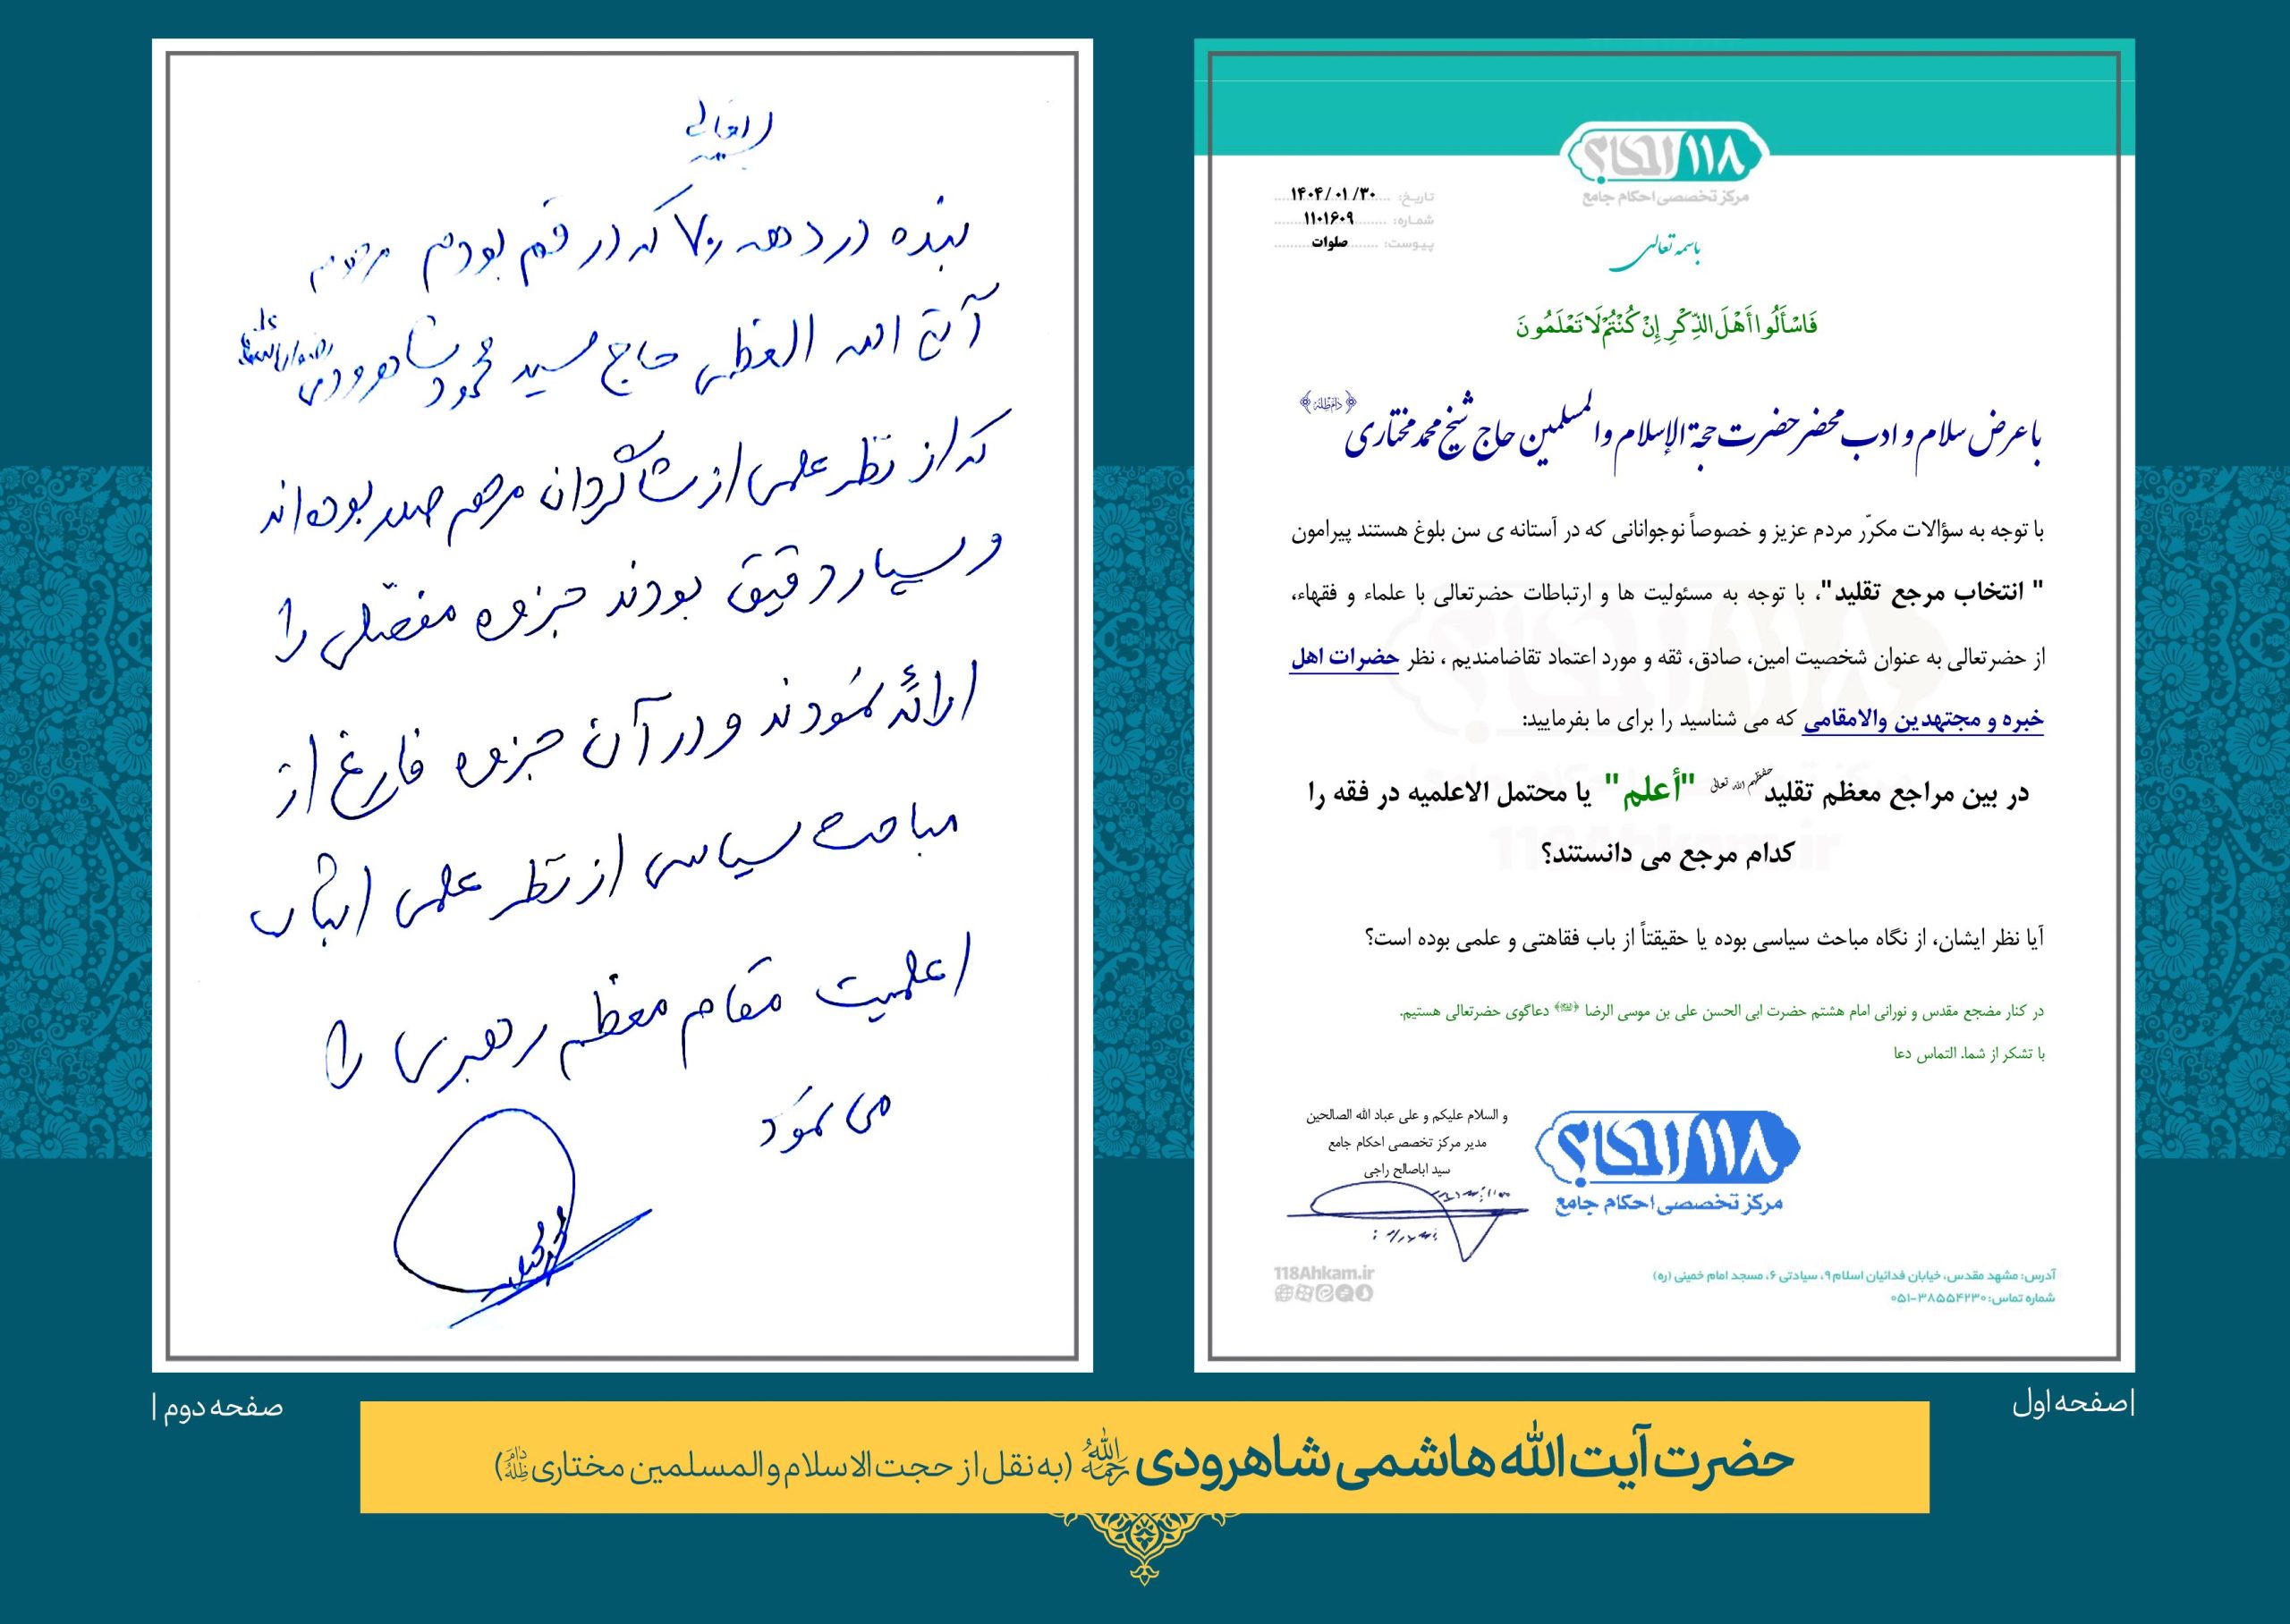 ۱۱۸ احکام
مرکز تخصصی احکام جامع
تاریخ: ۱۴۰۴/۰۱/۳۰
شماره: ۱۱۰۱۶۰۹
پیوست: صلوات
باسمه تعالی
فَاسْأَلُوا أَهْلَ الذِّكْرِ إِنْ كُنْتُمْ لَا تَعْلَمُونَ
با عرض سلام و ادب محضر حضرت حجة الإسلام والمسلمین حاج شیخ محمد مختاری ﴿دامَ ظِلُّهُ﴾
با توجه به سؤالات مکرّر مردم عزیز و خصوصاً نوجوانانی که در آستانه ی سن بلوغ هستند پیرامون
" انتخاب مرجع تقلید"، با توجه به مسئولیت ها و ارتباطات حضرتعالی با علماء و فقهاء،
از حضرتعالی به عنوان شخصیت امین، صادق، ثقه و مورد اعتماد تقاضامندیم ، نظر حضرات اهل
خبره و مجتهدین والامقامی که می شناسید را برای ما بفرمایید:
در بین مراجع معظم تقلید حفظهم الله تعالی "أعلم" یا محتمل الاعلمیه در فقه را
کدام مرجع می دانستند؟
آیا نظر ایشان، از نگاه مباحث سیاسی بوده یا حقیقتاً از باب فقاهتی و علمی بوده است؟
در کنار مضجع مقدس و نورانی امام هشتم حضرت ابی الحسن علی بن موسی الرضا دعاگوی حضرتعالی هستیم.
با تشکر از شما. التماس دعا
و السلام علیکم و علی عباد الله الصالحین
مدیر مرکز تخصصی احکام جامع
سید اباصالح راجی
۱۱۸ احکام
مرکز تخصصی احکام جامع
118Ahkam.ir
آدرس: مشهد مقدس، خیابان فدائیان اسلام ۹، سیادتی ۶، مسجد امام خمینی (ره)
شماره تماس: ۳۸۵۵۴۲۳۰-۰۵۱
118Ahkam.ir
|صفحه اول
بسمه تعالی
بنده در دهه ۷۰ که در قم بودم مرحوم
آیة الله العظمی حاج سید محمود شاهرودی رضوان الله علیه
که از نظر علمی از شاگردان مرحوم صدر بوده اند
و بسیار دقیق بودند جزوه مفصّلی را
ارائه نمودند و در آن جزوه فارغ از
مباحث سیاسی از نظر علمی اثبات
اعلمیت مقام معظم رهبری را
می نمود
صفحه دوم|
حضرت آیت الله هاشمی شاهرودی رحمه الله (به نقل از حجت الاسلام والمسلمین مختاری دام ظله)